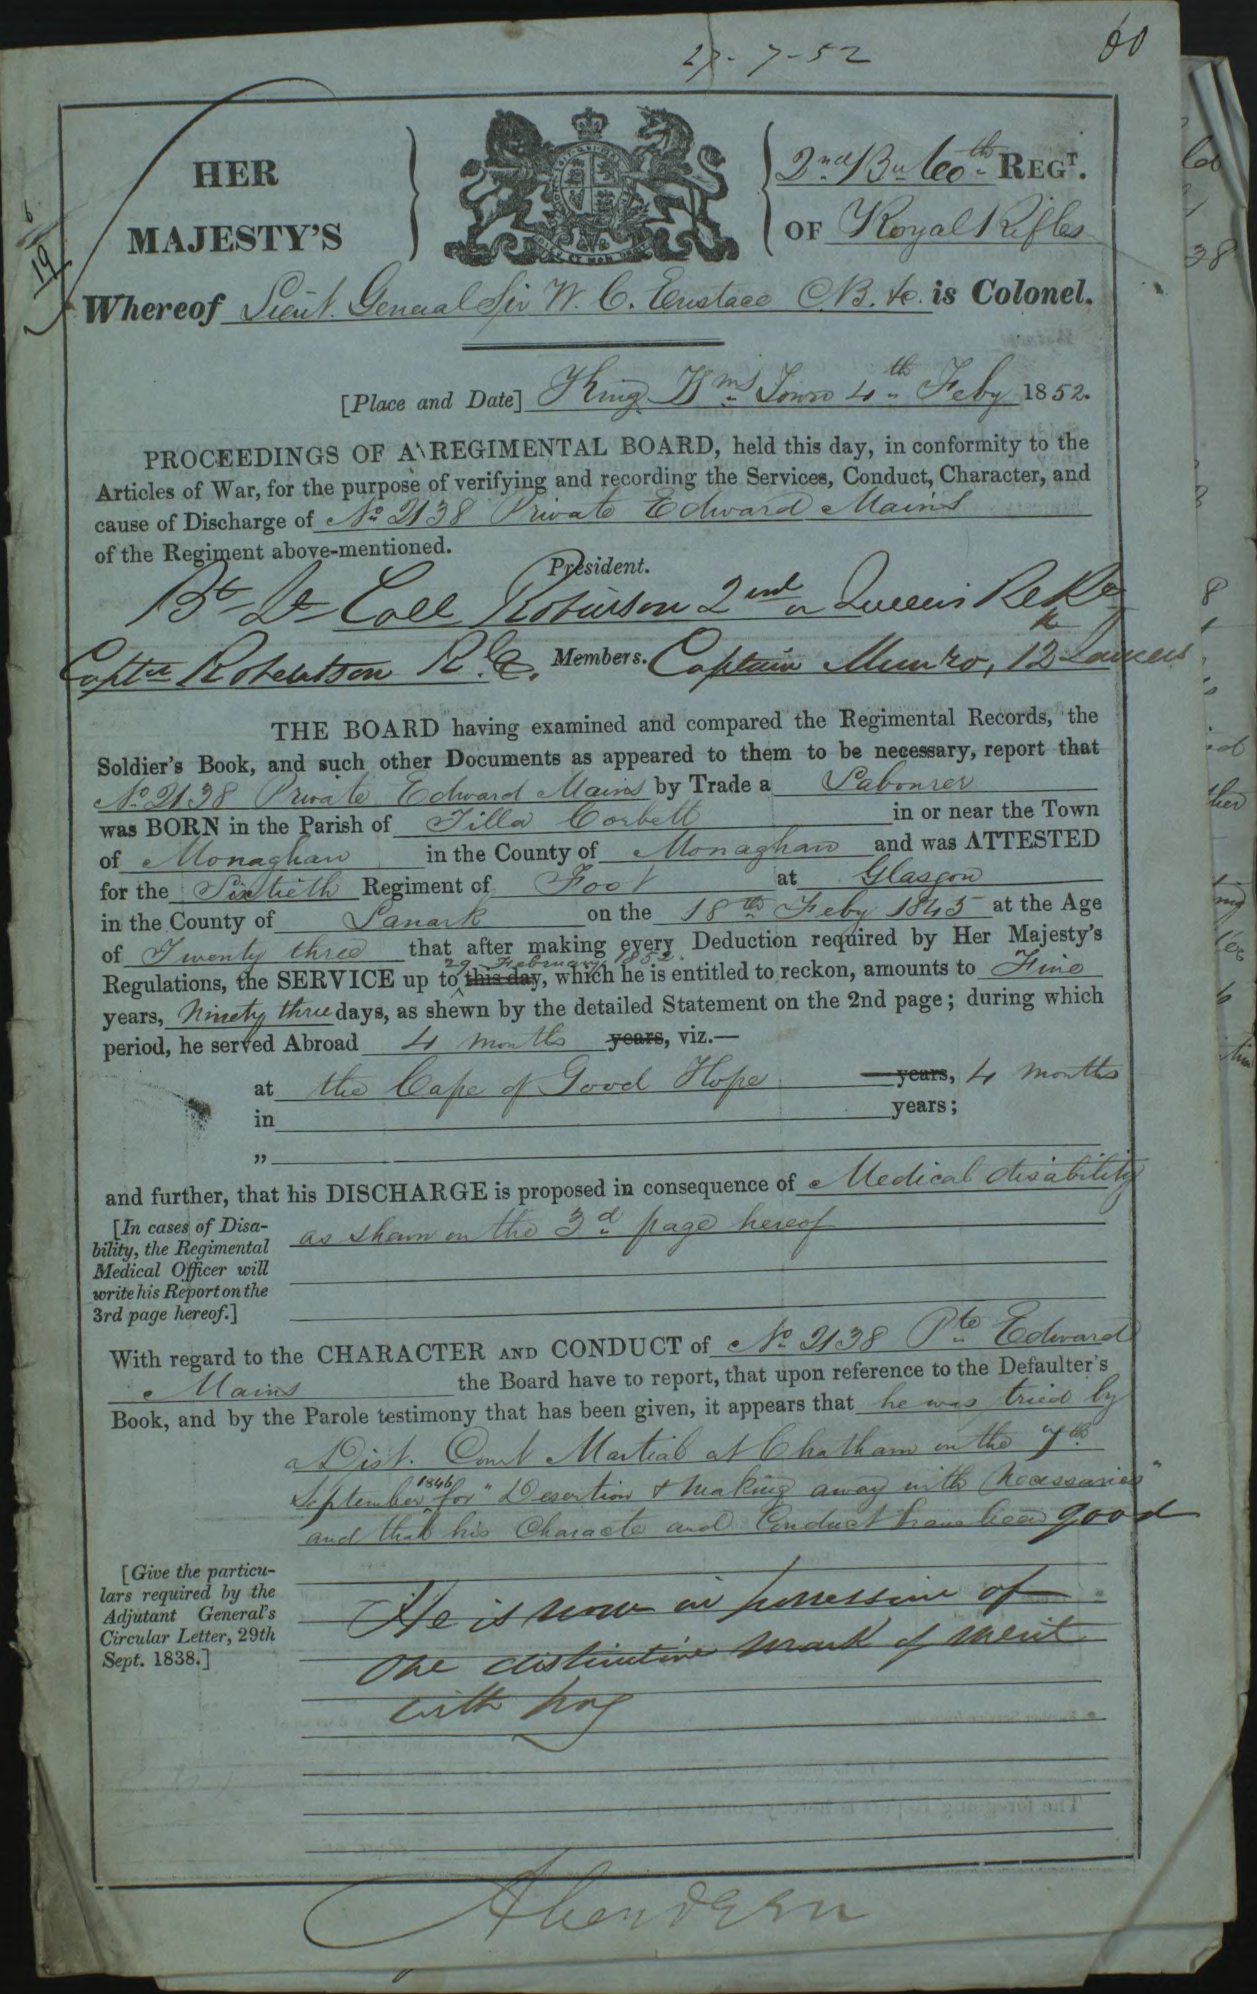 27-7-52
60
HER
MAJESTY'S
2nd Bn 60th REGT.
OF Royal Rifles
19
Whereof Lieut. General Sir W. C. Eustace C.B. &c. is Colonel.
[Place and Date] King Wms Town 4th Feby 1852.
PROCEEDINGS OF A REGIMENTAL BOARD, held this day, in conformity to the
Articles of War, for the purpose of verifying and recording the Services, Conduct, Character, and
cause of Discharge of No 2138 Private Edward Mains
of the Regiment above-mentioned.
President.
Bt Lt Coll Robinson 2nd or Queen's
Captn Robertson R.E. Members. Captain Munro, 12 Lancers
THE BOARD having examined and compared the Regimental Records, the
Soldier's Book, and such other Documents as appeared to them to be necessary, report that
No 2138 Private Edward Mains by Trade a Labourer
was BORN in the Parish of Tilla Corbett in or near the Town
of Monaghan in the County of Monaghan and was ATTESTED
for the Sixtieth Regiment of Foot at Glasgow
in the County of Lanark on the 18th Feby 1845 at the Age
of Twenty three that after making every Deduction required by Her Majesty's
29 February 1852.
Regulations, the SERVICE up to this day, which he is entitled to reckon, amounts to Five
years, Ninety three days, as shewn by the detailed Statement on the 2nd page; during which
period, he served Abroad 4 months years, viz.—
at the Cape of Good Hope years, 4 months
in years;
„
and further, that his DISCHARGE is proposed in consequence of Medical disability
as shewn on the 3d page hereof
[In cases of Disa-
bility, the Regimental
Medical Officer will
write his Report on the
3rd page hereof.]
With regard to the CHARACTER AND CONDUCT of No 2138 Pte Edward
Mains the Board have to report, that upon reference to the Defaulter's
Book, and by the Parole testimony that has been given, it appears that he was tried by
a Dist. Court Martial at Chatham on the 7th
September 1846 for "Desertion & making away with Necessaries"
and that his Character and Conduct have been good
[Give the particu-
lars required by the
Adjutant General's
Circular Letter, 29th
Sept. 1838.]
He is now in possession of
one distinctive mark of merit
with pay
Aberdeen